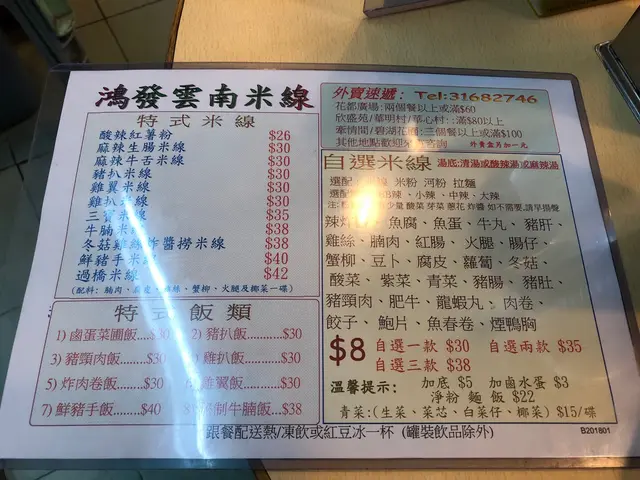 鴻發雲南米線
特式米線
酸辣紅薯粉 $26
麻辣生腸米線 $30
麻辣牛舌米線 $30
豬扒米線 $30
雞翼米線 $30
雞扒米線 $30
三寶米線 $35
牛腩米線 $38
冬菇雞絲炸醬撈米線 $38
鮮豬手米線 $40
過橋米線 $42
蟹柳、火腿及椰菜一碟)
特式飯類
1) 鹵蛋菜圃飯 $30 2) 豬扒飯 $30
3) 豬頸肉飯 $30 雞扒飯 $30
5) 炸肉卷飯 $30 雞翼飯 $30
7) 鮮豬手飯 $40 制牛腩飯 $38
外賣速遞: Tel:31682746
花都廣場:兩個餐以上或滿$60
欣盛苑/華明村/華心村::滿$80以上
牽情間/碧湖花園:三個餐以上或滿$100
其他地點歡迎 外賣盒另加一元
自選米線 湯底:清湯或酸辣湯或麻辣湯
選配: 米粉 河粉 拉麵
小辣、中辣、大辣
少量 酸菜 芽菜 蔥花 炸醬 如不需要,請早揚聲
魚腐、魚蛋、牛丸、豬肝、
雞絲、腩肉、紅腸、火腿、腸仔、
蟹柳、豆卜、腐皮、蘿蔔、冬菇、
酸菜、紫菜、青菜、豬腸、豬肚、
豬頸肉、肥牛、龍蝦丸、肉卷、
餃子、鮑片、魚春卷、煙鴨胸
$8 自選一款 $30 自選兩款 $35
自選三款 $38
溫馨提示: 加底 $5 加鹵水蛋 $3
淨粉 麵 飯 $22
青菜:(生菜、菜芯、白菜仔、椰菜) $15/碟
跟餐配送熱/凍飲或紅豆冰一杯 (罐裝飲品除外)
B201801